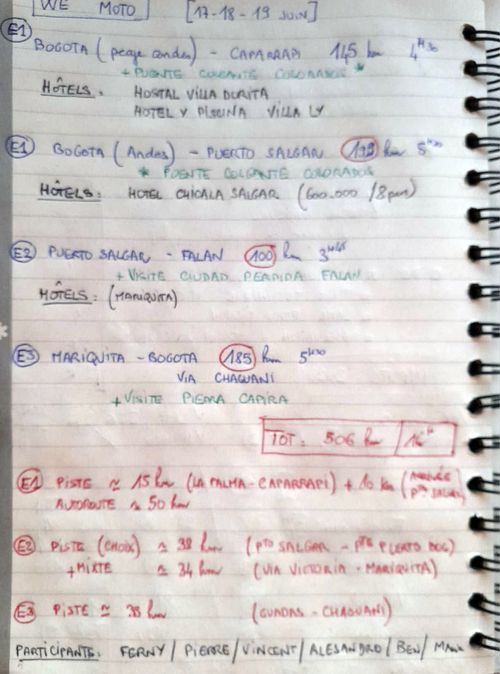 WE MOTO [17-18-19 JUIN]
E1 BOGOTA (peaje andes) - CAPARRAPI 145 km 4H30
+ PUENTE COLGANTE COLORADOS *
HÔTELS: HOSTAL VILLA DORITA
HOTEL Y PISCINA VILLA LY
E1 BOGOTA (Andes) - PUERTO SALGAR km 5H30
* PUENTE COLGANTE COLORADOS
HÔTELS: HOTEL CHICALA SALGAR (600.000 /8per)
E2 PUERTO SALGAR - FALAN 100 km 3H45
+ VISITE CIUDAD PERDIDA FALAN
HÔTELS: (MARIQUITA)
E3 MARIQUITA - BOGOTA 185 km 5H30
VIA CHAGUANI
+ VISITE PIEDRA CAPIRA
TOT: 506 km / H
E1 PISTE ≈ 15 km (LA PALMA - CAPARRAPI) + 10 km (ARRIVÉE
AUTOROUTE ≈ 50 km PTO SALGAR)
E2 PISTE (CHOIX) ≈ 38 km (PTO SALGAR - PTE PUERTO BOG)
+ MIXTE ≈ 34 km (VIA VICTORIA - MARIQUITA)
E3 PISTE ≈ 38 km (GUADAS - CHAGUANI)
PARTICIPANTS: FERNY / PIERRE / VINCENT / ALESANDRO / BEN /